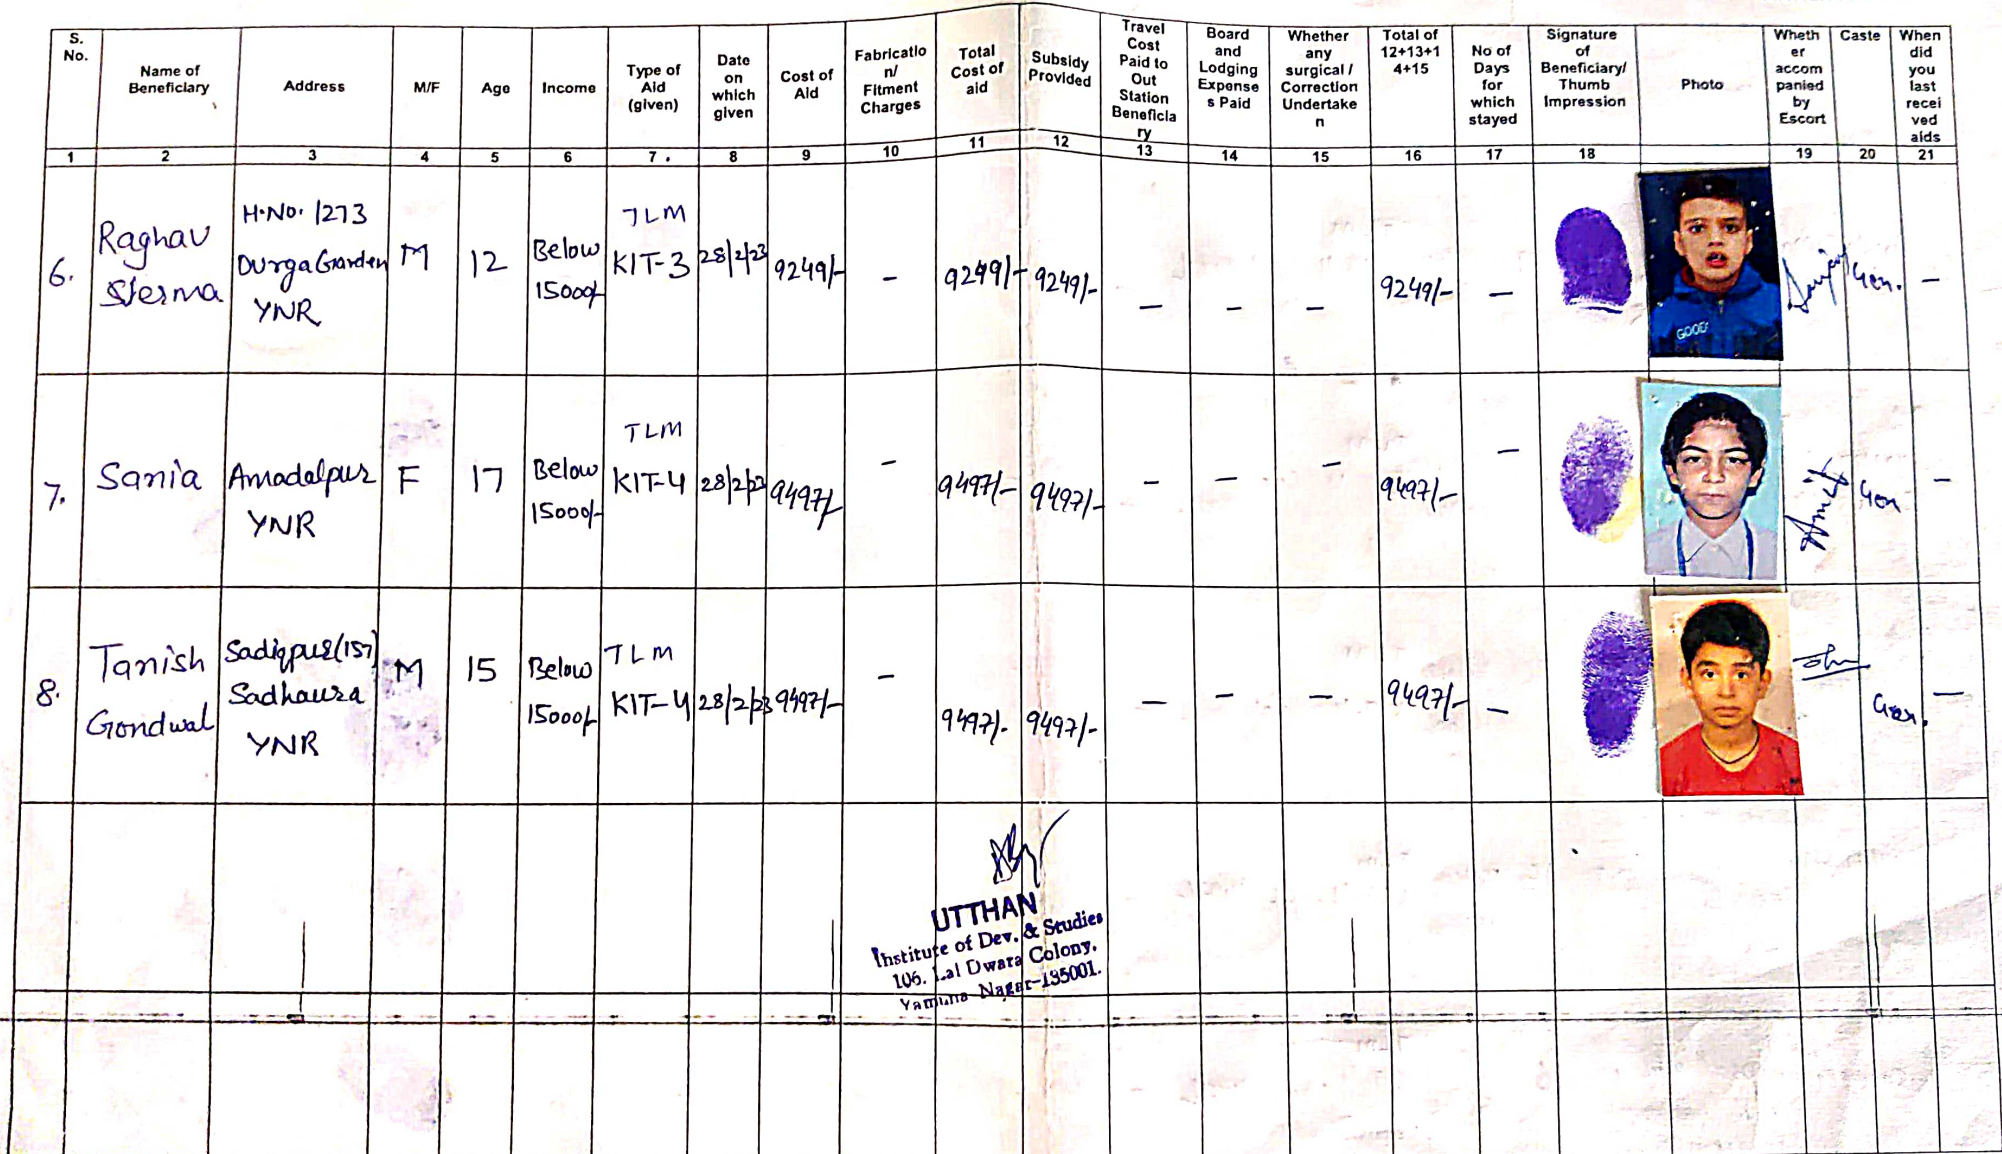 S. No.
Name of Beneficiary
Address
M/F
Age
Income
Type of Aid (given)
Date on which given
Cost of Aid
Fabricatio n/ Fitment Charges
Total Cost of aid
Subsidy Provided
Travel Cost Paid to Out Station Beneficia ry
Board and Lodging Expense s Paid
Whether any surgical / Correction Undertake n
Total of 12+13+1 4+15
No of Days for which stayed
Signature of Beneficiary/ Thumb Impression
Photo
Wheth er accom panied by Escort
Caste
When did you last recei ved aids
1 2 3 4 5 6 7 8 9 10 11 12 13 14 15 16 17 18 19 20 21
6. Raghav Sherma H.No. 1273 Durga Garden YNR M 12 Below 15000/- TLM KIT-3 28/2/23 9249/- - 9249/- 9249/- - - - 9249/- - Sanjay Gen. -
GOOD
7. Sania Amadalpur YNR F 17 Below 15000/- TLM KIT-4 28/2/23 9497/- - 9497/- 9497/- - - - 9497/- - Amit Gen -
8. Tanish Gondwal Sadiqpur (157) Sadhaura YNR M 15 Below 15000/- TLM KIT-4 28/2/23 9497/- - 9497/- 9497/- - - - 9497/- - Gen. -
UTTHAN
Institute of Dev. & Studies
106, Lal Dwara Colony,
Yamuna Nagar-135001.